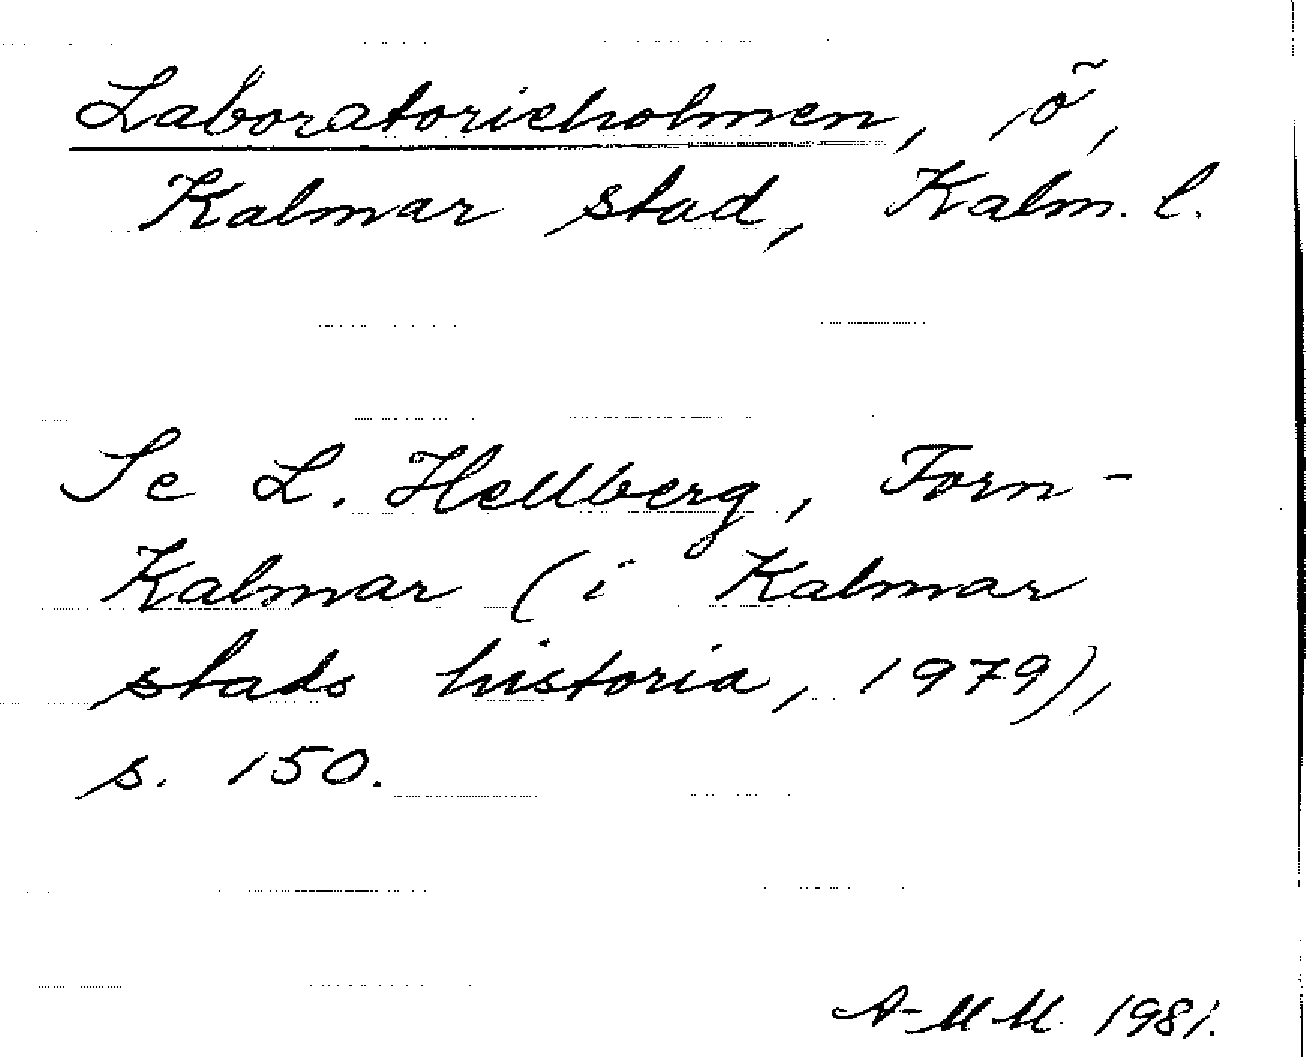 Laboratorieholmen, ö,
Kalmar stad, Kalm. l.
Se L. Hellberg, Forn-
Kalmar (i Kalmar
stads historia, 1979),
s. 150.
A-MM 1981.